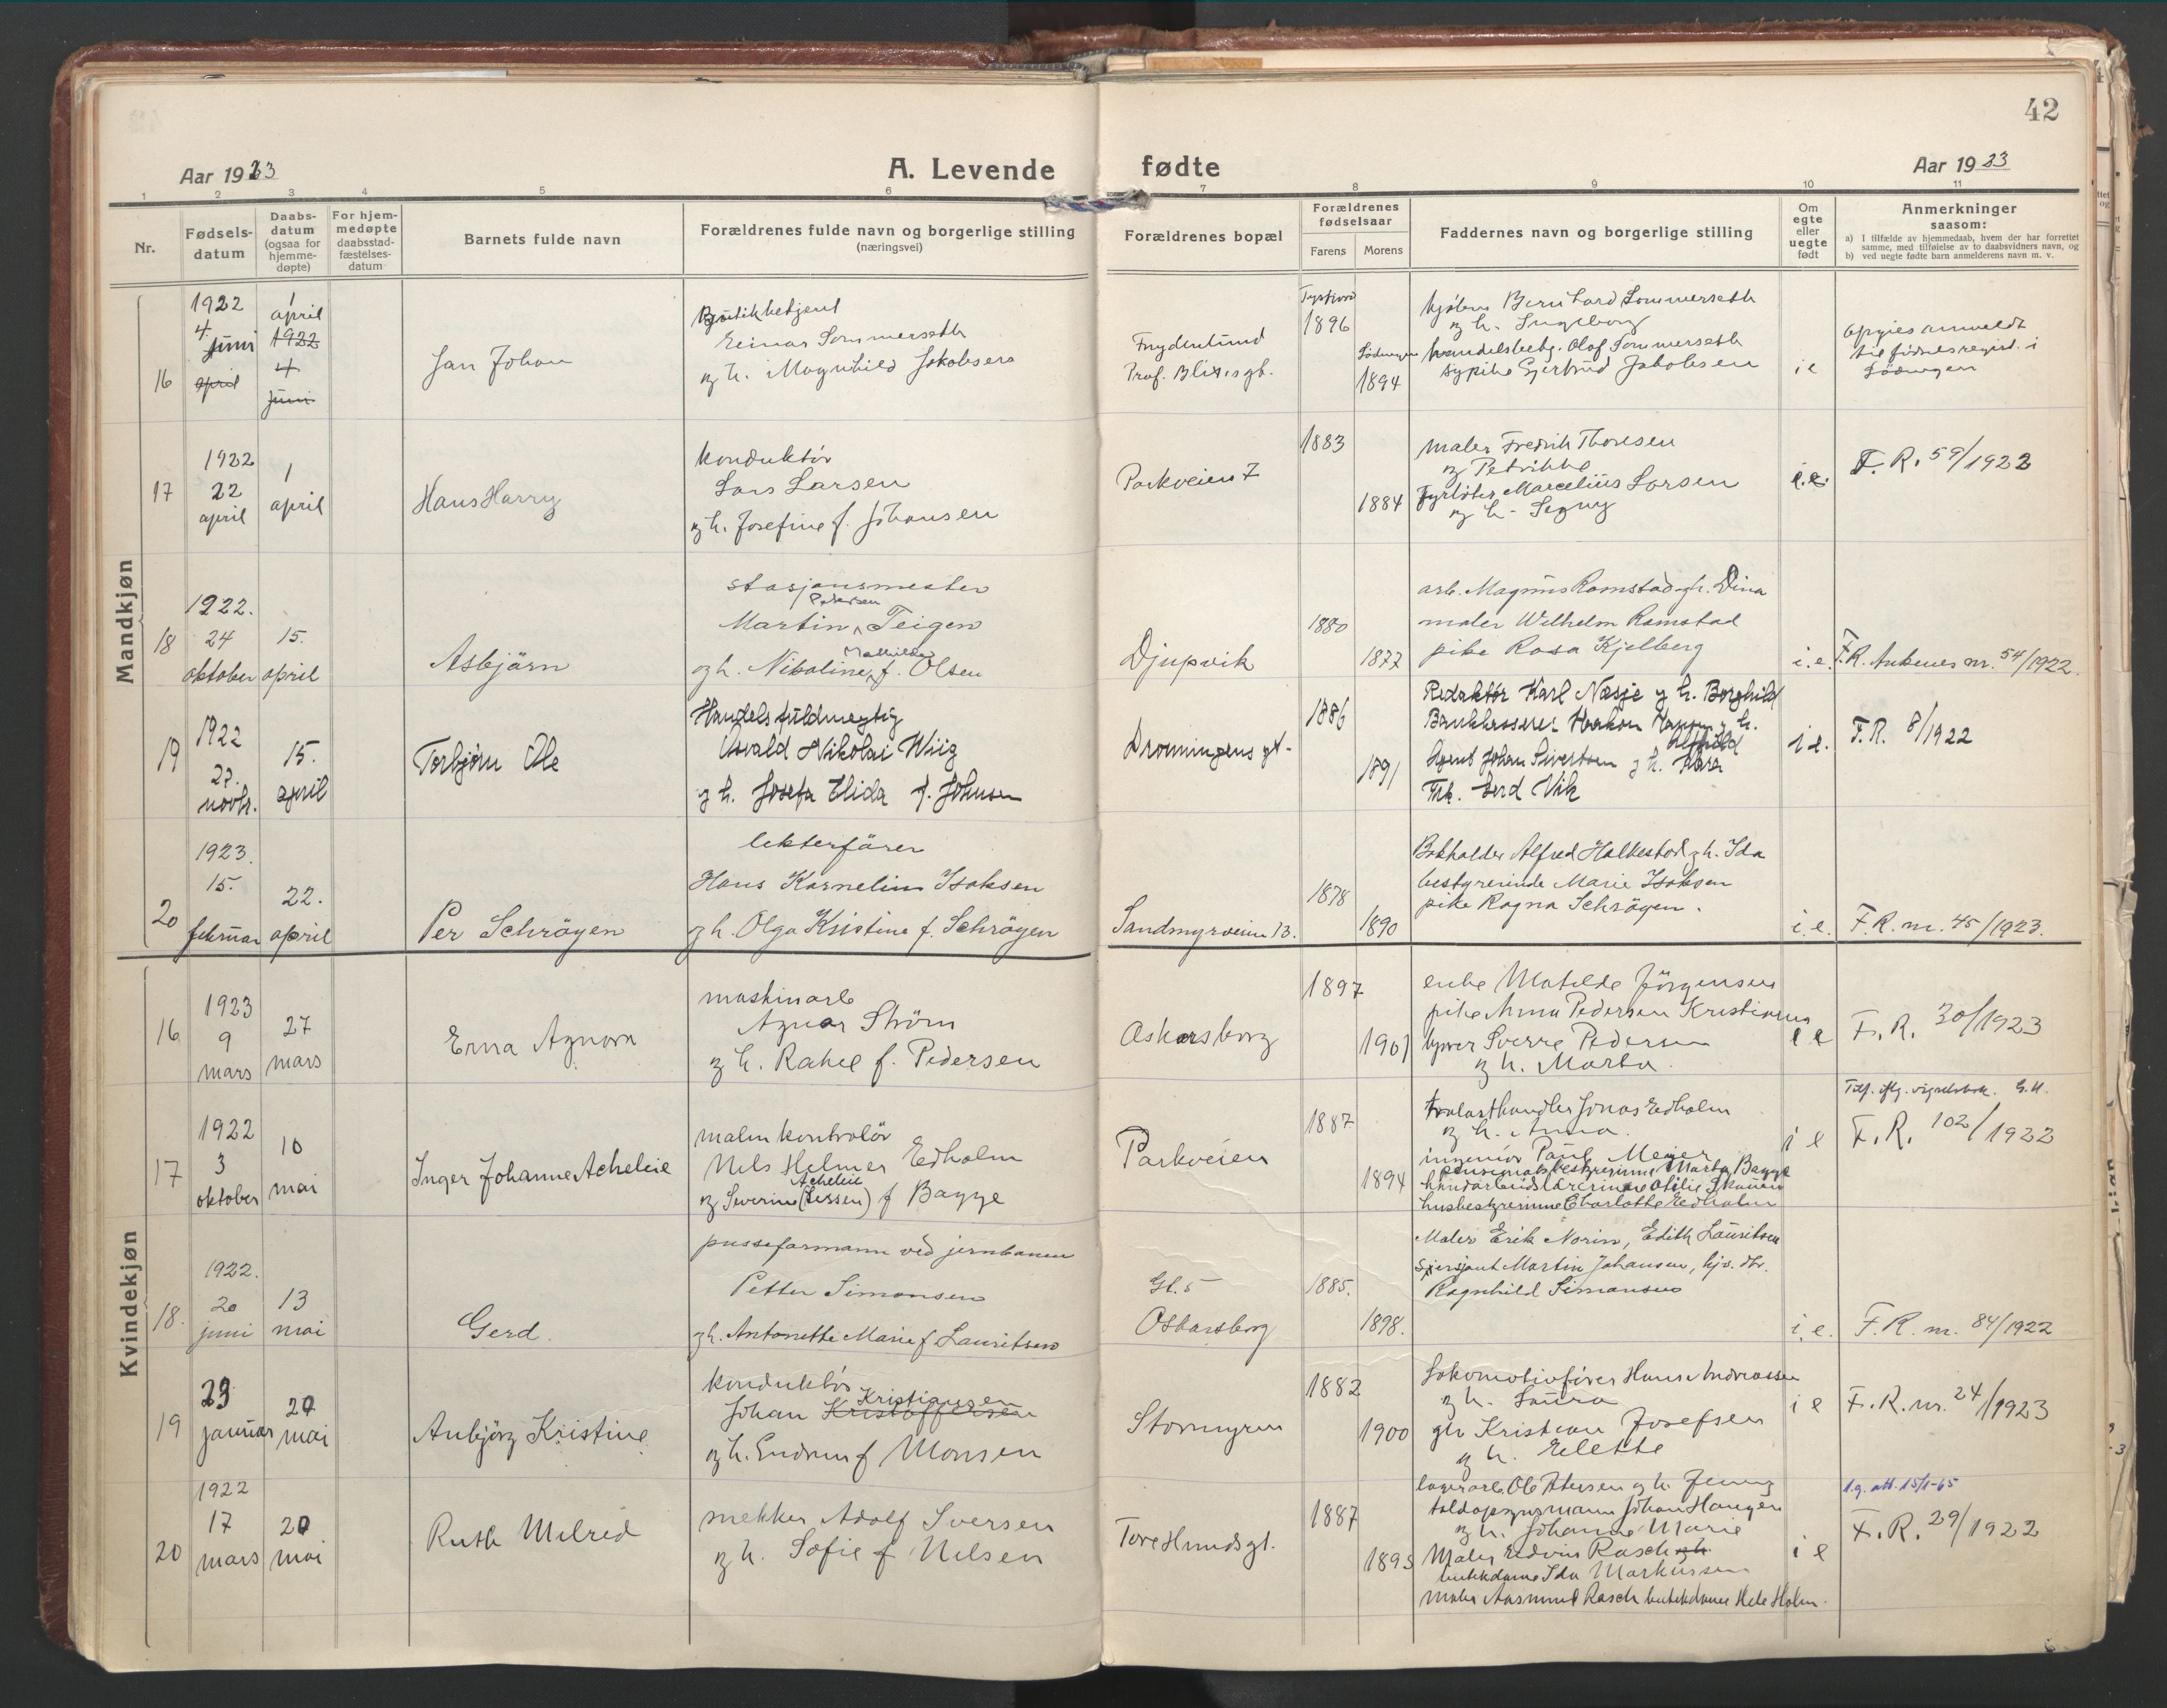 42
Aar 1923
A. Levende fødte
Aar 1923
1 2 3 4 5 6 7 8 9 10 11
Nr.
Fødsels-
datum
Daabs-
datum
(ogsaa for
hjemme-
døpte)
For hjem-
medøpte
daabsstad-
fæstelses-
datum
Barnets fulde navn
Forældrenes fulde navn og borgerlige stilling
(næringsvei)
Forældrenes bopæl
Forældrenes
fødselsaar
Farens
Morens
Faddernes navn og borgerlige stilling
Om
egte
eller
uegte
født
Anmerkninger
saasom:
a) I tilfælde av hjemmedaab, hvem der har forrettet
samme, med tilføielse av to daabsvidners navn, og
b) ved uegte fødte barn anmelderens navn m. v.
Mandkjøn
16
1922
4
juni
april
1
april
1922
4
juni
Jan Johan
Butikbetjent
Einar Sommerseth
og h. Magnhild Jakobsen
Frydenlund
Prof. Blixsgt.
1896
Lødingen
1894
Bernhard Sommerseth
og h. Ingeborg
handelsbetj. Olaf Sommerseth
sypike Gjertrud Jakobsen
i e
opgies anmeldt
til fødselsregist. i
Lødingen
17
1922
22
april
1
april
Hans Harry
konduktör
Lars Larsen
og h. Josefine f. Johansen
Parkveien 7
1883
1884
maler Fredrik Thoresen
og Petrikke
fyrbøter Marcelius Larsen
og h. Signy
i.e.
F. R. 59/1922
18
1922.
24
oktober
15.
april
Asbjørn
stasjonsmester
Pedersen
Martin Teigen
Mathilde
og h. Nikoline f. Olsen
Djupvik
1880
1877
arb. Magnus Ramstad og h. Dina
maler Wilhelm Ramstad
pike Rosa Kjelberg
i.e.
F.R. Ankenes nr. 54/1922.
19
1922
27.
novbr.
15.
april
Torbjørn Ole
Handelsfuldmegtig
Osvald Nikolai Wiig
og h. Josefa Elida f. Johnsen
Dronningens gt.
1886
1891
Redaktør Karl Næsje og h. Borghild
Bankkasserer Haakon og h.
Alfhild
Agent Johan Sivertsen og h. Klara
Frk. Gerd Vik
i e.
F. R. 8/1922
20
1923.
15.
februar
22.
april
Per Schrøyen
lekterfører
Hans Kornelius Isaksen
og h. Olga Kristine f. Schrøyen
Sandmyrveien 13.
1878
1890
Bokholder Alfred Halkestad og h. Ida
bestyrerinde Marie Isaksen
pike Ragna Schrøyen.
i.e.
F. R. nr. 45/1923.
Kvindekjøn
16
1923
9
mars
27
mars
Erna Agnora
maskinarb
Agnar Strøm
og h. Rakel f. Pedersen
Oskarsborg
1897
1901
enke Matilde Jörgensen
pike Anna Pedersen Kristiania
Sverre Pedersen
og h. Marta.
i e
F. R. 30/1923
17
1922
3
oktober
10
mai
Inger Johanne Acheleie
malmkontrolör
Nils Helmer Edholm
Acheleie
og Severine (Lessen) f Bagge
Parkveien
1887
1894
trelasthandler Jonas Edholm
og h. Anna.
ingeniör Paul Meyer
pensionatsbestyrerinne Marta Bagge
handarbeidslærerinne Otilie Skauen
husbestyrerinne Charlotte Edholm
i e
Tilf. iflg. vigselsbok. G.H.
F. R. 102/1922
18.
1922.
20
juni
13
mai
Gerd.
pusseformann ved jernbanen
Petter Simonsen
og h. Antonette Marie f Lauritsen
Gt. 5
Oskarsborg
1885.
1898.
Maler Erik Norin, Edith Lauritsen
Sersjant Martin Johansen, hjv. dtr.
Ragnhild Simonsen
i.e.
F. R. nr. 84/1922
19
23
januar
20
mai
Anbjørg Kristine
konduktör
Kristiansen
Johan Kristoffersen
og h. Gudrun f Monsen
Stormyren
1882
1900
Lokomotivfører Hans Andreassen
og h. Laura
gbr Kristian Josefsen
og h. Elette
i e
F. R. nr. 24/1923
20
1922
17
mars
20
mai
Ruth Milred
snekker Adolf Iversen
og h. Sofie f Nilsen
Tore Hundsgt.
1887
1893
lagerarb. Ole Petersen og h. Jenny
toldopsynsmann Johan Haugen
og h. Johanne Marie
Maler Edvin Rasch og h.
butikdame Ida Markussen
maler Aasmund Rasch butikdame Helε Holm.
i e
l.g. att. 15/1-65
F. R. 29/1922